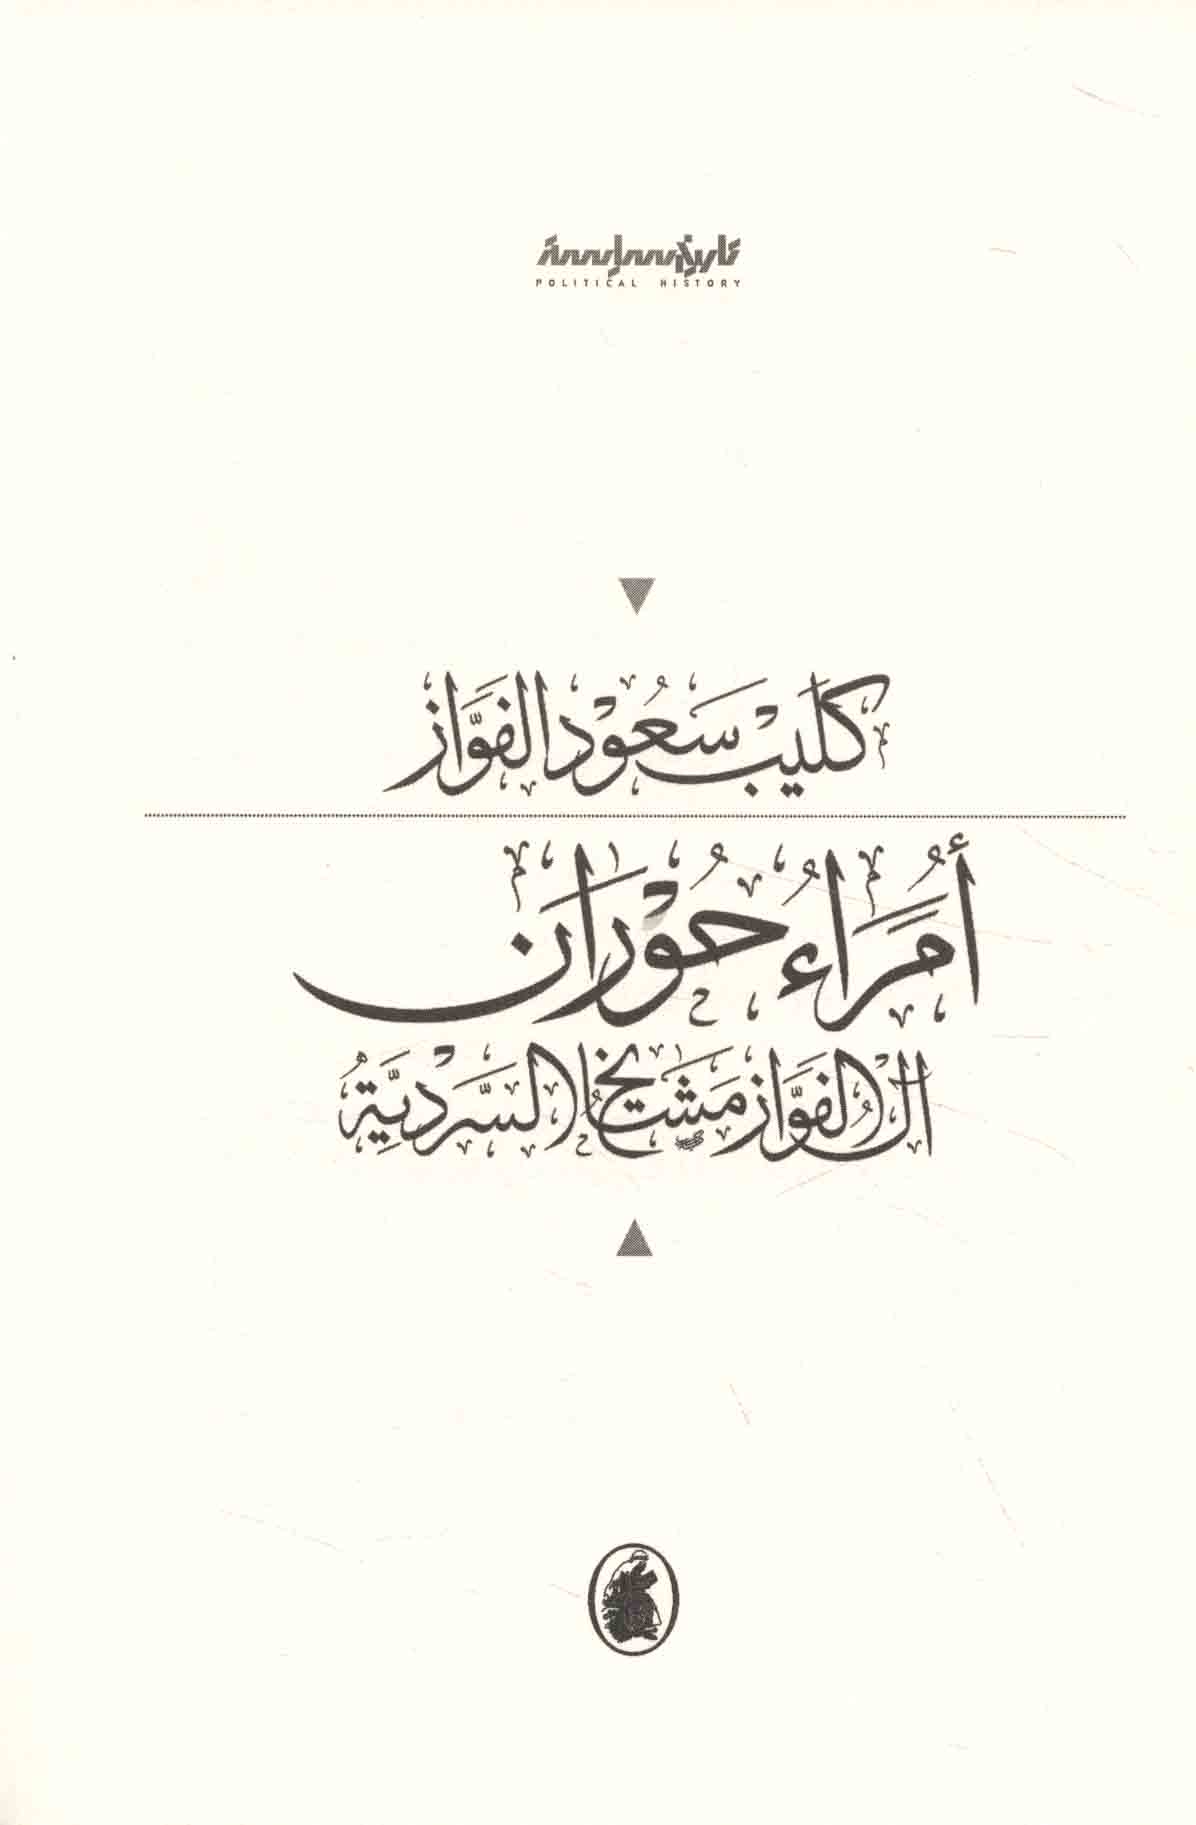 تاريخ سياسة
POLITICAL HISTORY
كليب سعود الفواز
أمراء حوران
آل الفواز مشايخ السردية